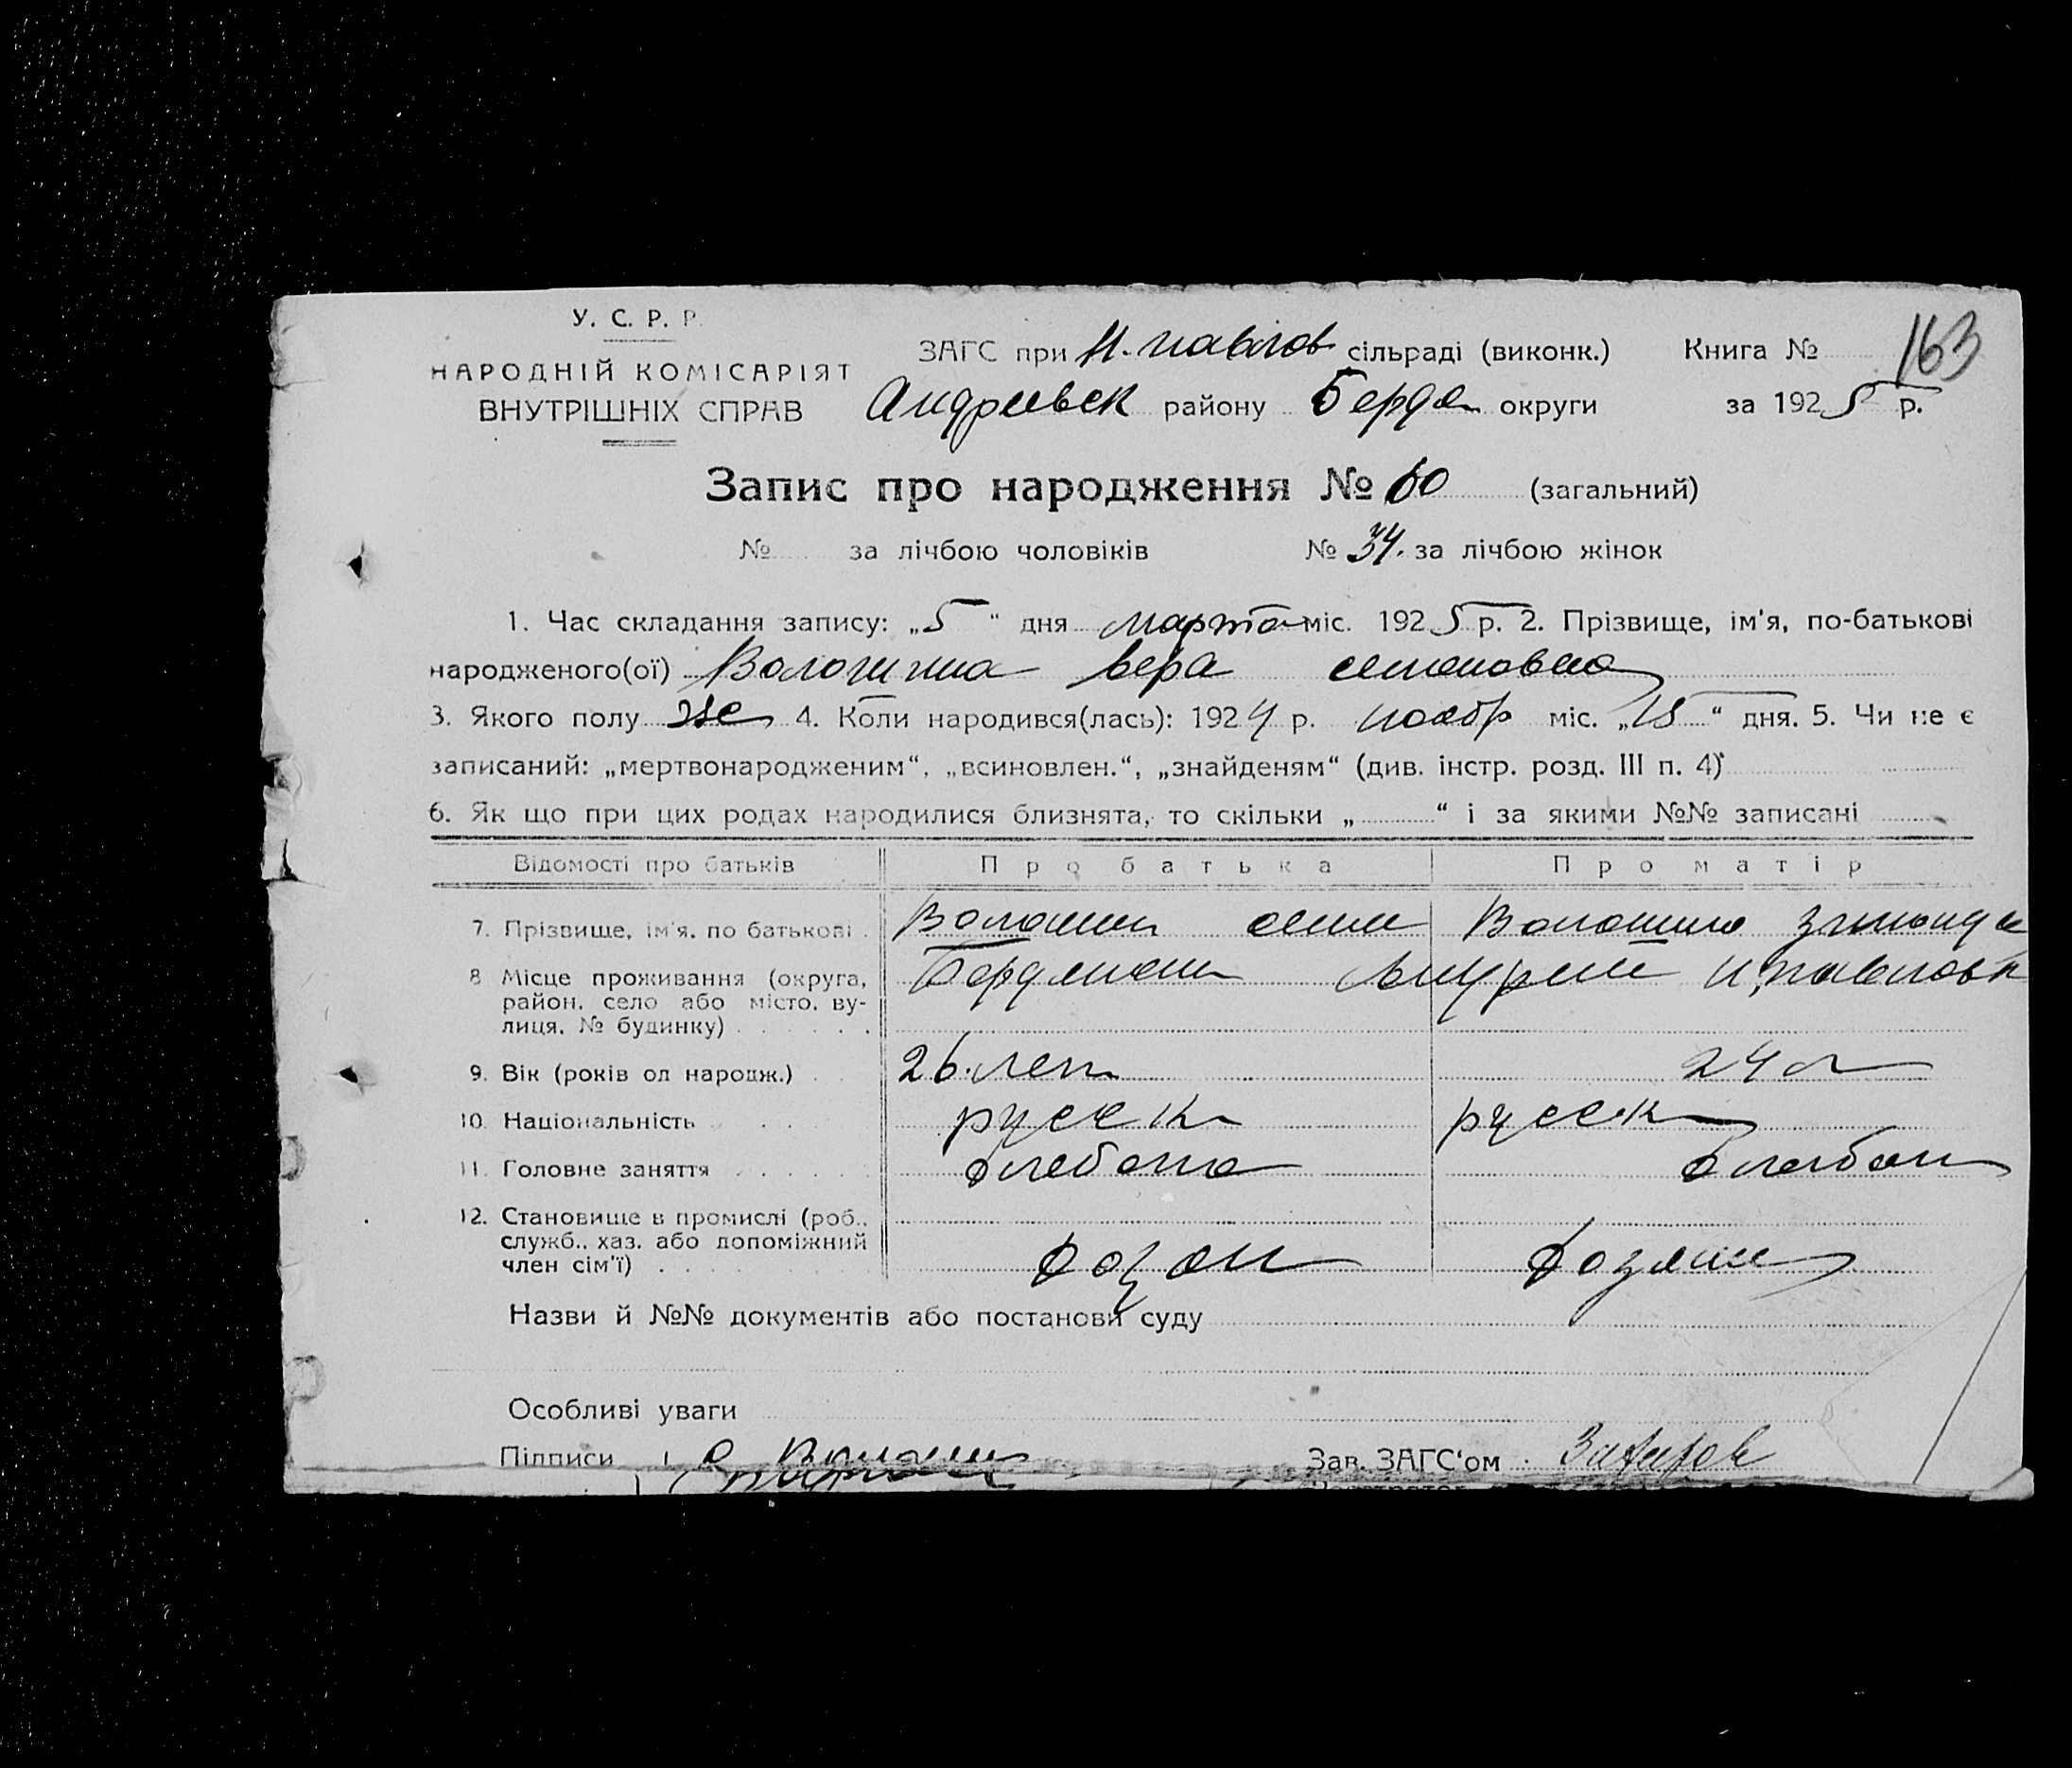 У. С. Р. Р.
НАРОДНІЙ КОМІСАРІЯТ
ВНУТРІШНІХ СПРАВ
ЗАГС при Н. павлов сільраді (виконк.) Книга № 163
Андреевск района Берд округи за 1925 р.
Запис про народження № 60 (загальний)
№ за лічбою чоловіків № 34. за лічбою жінок
1. Час складання запису: „5“ дня марта міс. 1925 р. 2. Прізвище, ім'я, по-батькові
народженого(ої) Волошина вера семеновна
3. Якого полу же 4. Коли народився(лась): 1924 р. ноябр міс. „15“ дня. 5. Чи не є
записаний: „мертвонародженим“, „всиновлен.“, „знайденям“ (див. інстр. розд. III п. 4)
6. Як що при цих родах народилися близнята, то скільки „ “ і за якими №№ записані
Відомості про батьків Про батька Про матір
7. Прізвище, ім'я, по батькові Волошин семен Волошина
8 Місце проживання (округа, район, село або місто, вулиця, № будинку) Бердянск Андреев Н, павловк
9. Вік (років од народж.) 26 лет 24 л
10. Національність русск русск
11. Головне заняття хлебопа хлебоп
12. Становище в промислі (роб., служб., хаз. або допоміжний член сім'ї) хозяин хозяин
Назви й №№ документів або постанови суду
Особливі уваги
Підписи Волошин Зав. ЗАГС‘ом